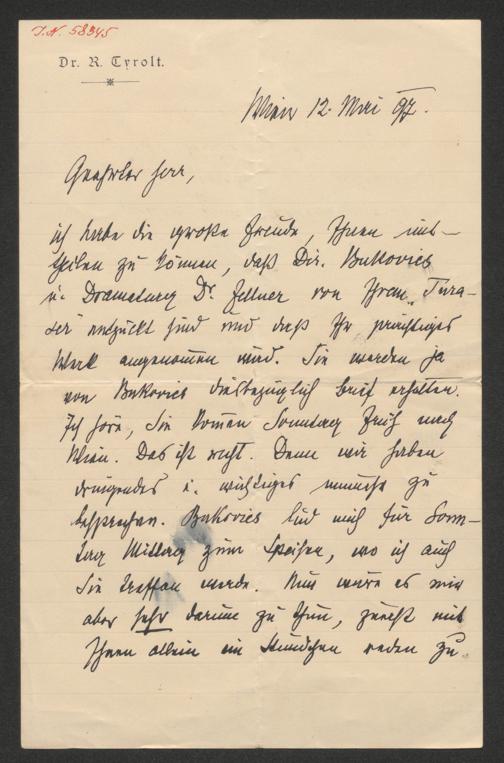 J.N. 58345
Dr. R. Tyrolt.
Wien 12. Mai 97.
Geehrter Herr,
ich habe die große Freude, Ihnen mit-
theilen zu können, daß Dir. Bukovics
u. Dramaturg Dr. Fellner von Ihrem
entzückt sind und daß Ihr prächtiges
Werk angenommen wird. Sie werden ja
von Bukovics diesbezüglich Brief erhalten.
Ich höre, Sie komen Sonntag Früh nach
Wien. Das ist recht. Denn wir haben
dringendes u. wichtiges zu
besprechen. Bukovics lud mich für Sonn-
tag Mittag zum Speisen, wo ich auch
Sie treffen werde. Nun wäre es mir
aber sehr darum zu thun, zuerst mit
Ihnen allein ein Stündchen reden zu